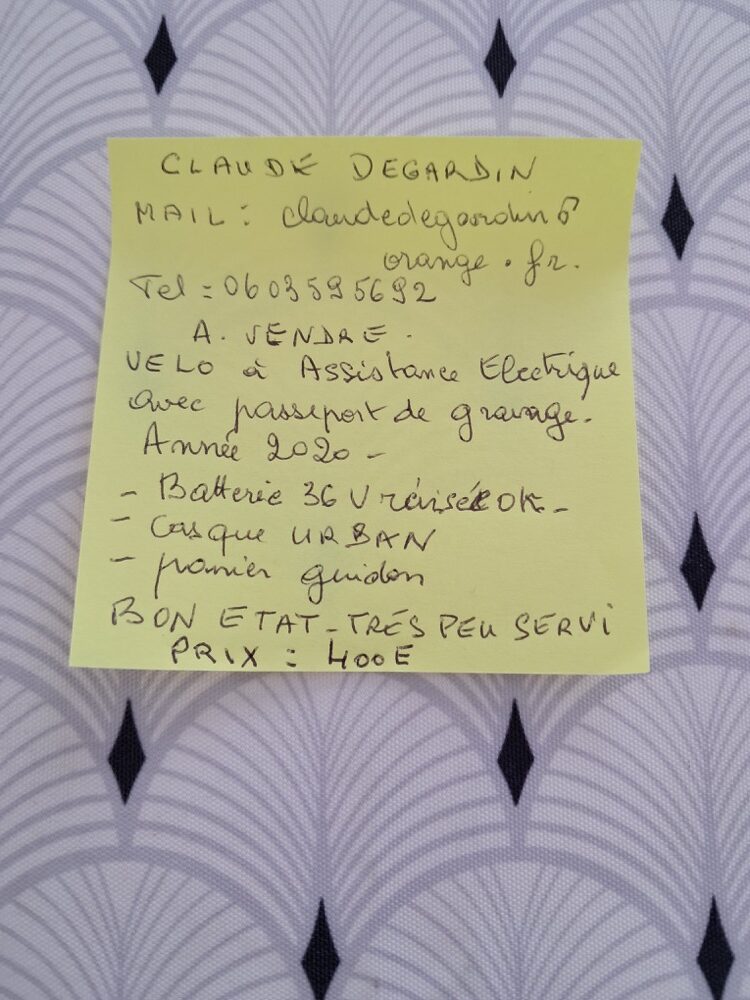 CLAUDE DEGARDIN
MAIL : claudedegardin@
orange.fr.
Tel = 0603595692
A. VENDRE.
VELO à Assistance Electrique
avec passeport de gravage.
Année 2020 -
- Batterie 36 V OK -
- Casque URBAN
- panier guidon
BON ETAT - TRÉS PEU SERVI
PRIX : 400E